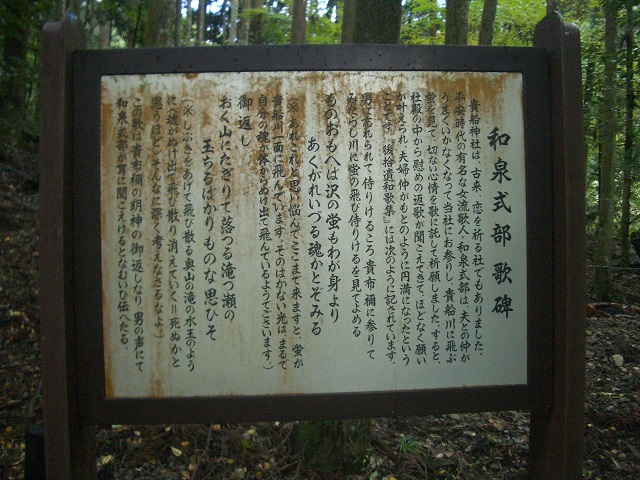 和泉式部歌碑
貴船神社は、古来、恋を祈る社でもありました。
平安時代の有名な女流歌人・和泉式部は、夫との仲が
うまくいかなくなって当社にお参りし、貴船川に飛ぶ
蛍を見て、切ない心情を歌に託して祈願しました。すると、
社殿の中から慰めの返歌が聞こえてきて、ほどなく願い
が叶えられ、夫婦仲がもとのように円満になったという
ことです。『後拾遺和歌集』には次のように記されています。
男に忘られて侍りけるころ貴布禰に参りて
みたらし川に蛍の飛び侍りけるを見てよめる
ものおもへば沢の蛍もわが身より
あくがれいづる魂かとぞみる
(※あれこれと思い悩んでここまで来ますと、蛍が
貴船川一面に飛んでいます。そのはかない光は、まるで
自分の魂が体からぬけ出て飛んでいるようでございます。)
御返し
おく山にたぎりて落つる滝つ瀬の
玉ちるばかりものな思ひそ
(※しぶきをあげて飛び散る奥山の滝の水玉のよう
に(魂がぬけ出て飛び散り消えていく=死ぬかと
思うほど)そんなに深く考えなさるなよ。)
この歌は貴布禰の明神の御返しなり、男の声にて
和泉式部が耳に聞こえけるとなむいひ伝へたる。